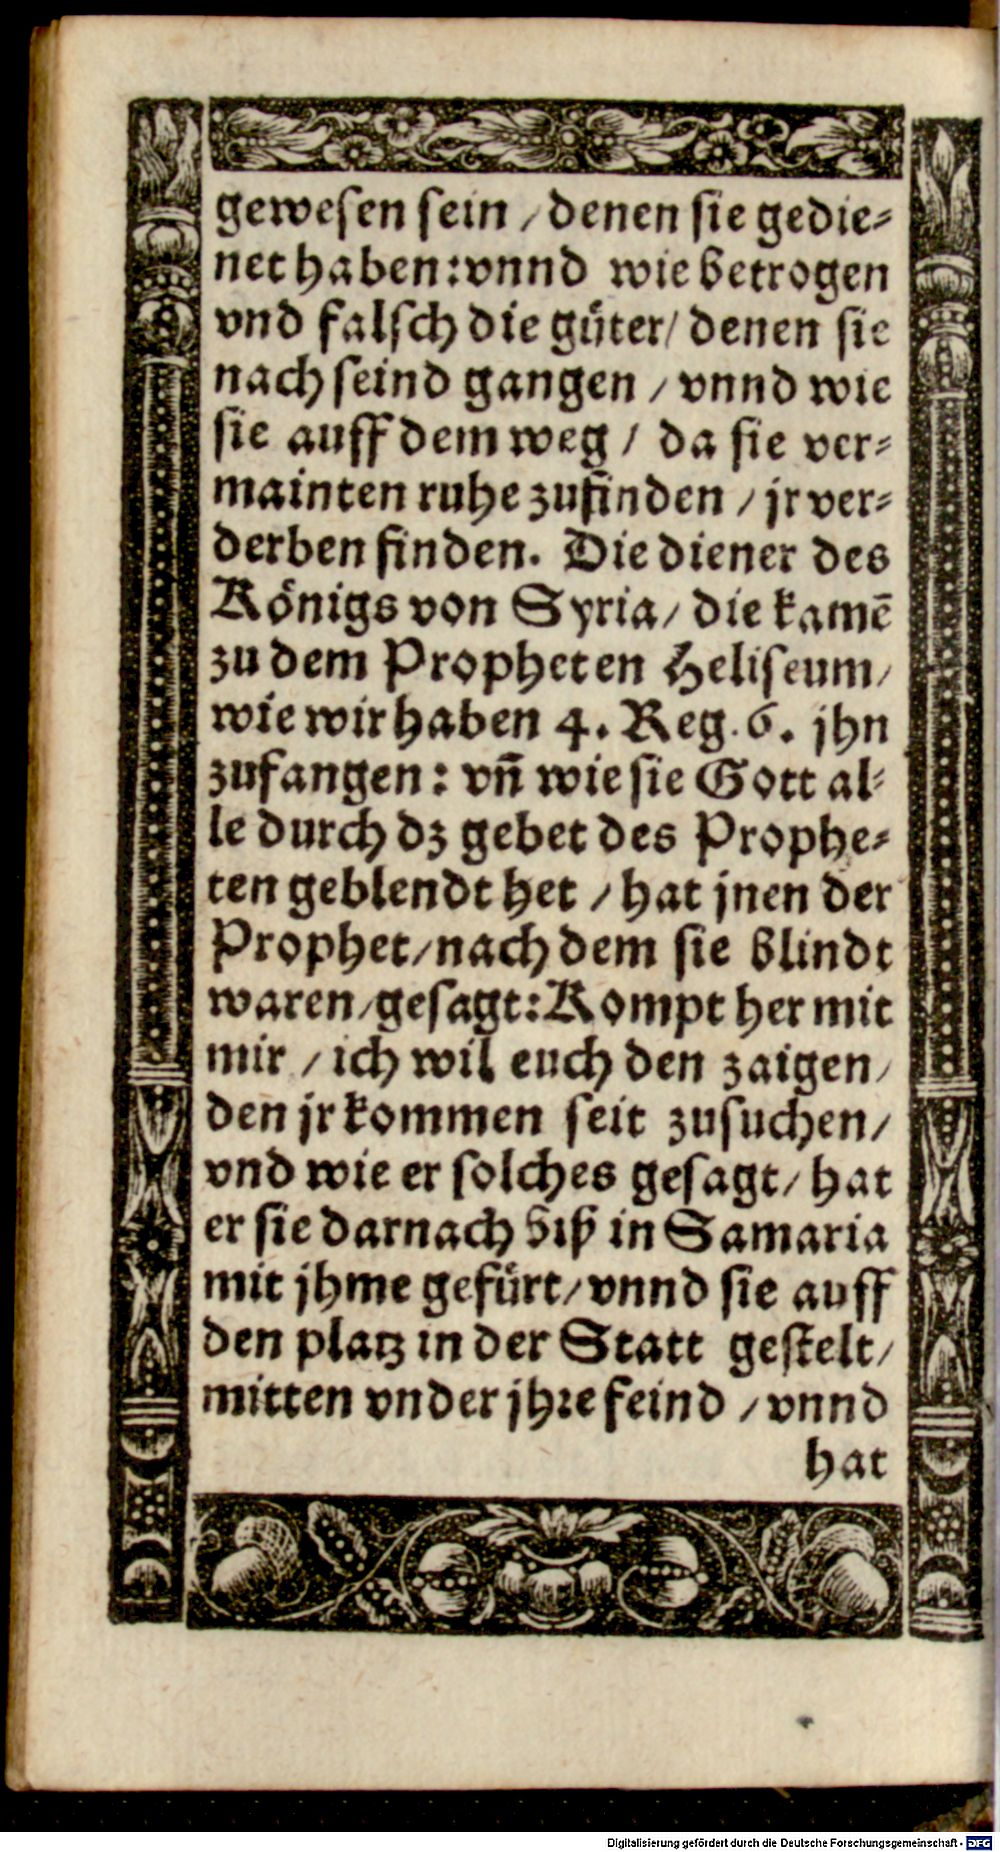 gewesen sein / denen sie gedie⸗
net haben: vnnd wie betrogen
vnd falsch die güter / denen sie
nach seind gangen / vnnd wie
sie auff dem weg / da sie ver⸗
mainten ruhe zufinden / jr ver⸗
derben finden. Die diener des
Königs von Syria / die kamẽ
zu dem Propheten Heliseum /
wie wir haben 4. Reg. 6. jhn
zufangen: vñ wie sie Gott al⸗
le durch dz gebet des Prophe⸗
ten geblendt het / hat jnen der
Prophet / nach dem sie blindt
waren / gesagt: Kompt her mit
mir / ich wil euch den zaigen /
den jr kommen seit zusuchen /
vnd wie er solches gesagt / hat
er sie darnach biß in Samaria
mit jhme gefürt / vnnd sie auff
den platz in der Statt gestelt /
mitten vnder jhre feind / vnnd
hat
Digitalisierung gefördert durch die Deutsche Forschungsgemeinschaft - DFG